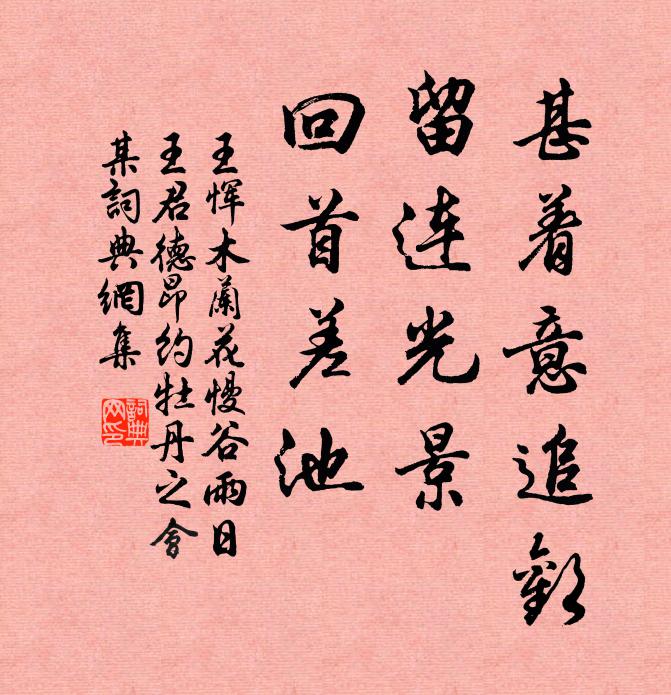 甚着意追歡
留連光景
回首差池
王惲木蘭花慢谷雨日
王君德昂約牡丹之會
某詞典網集
詞典網印